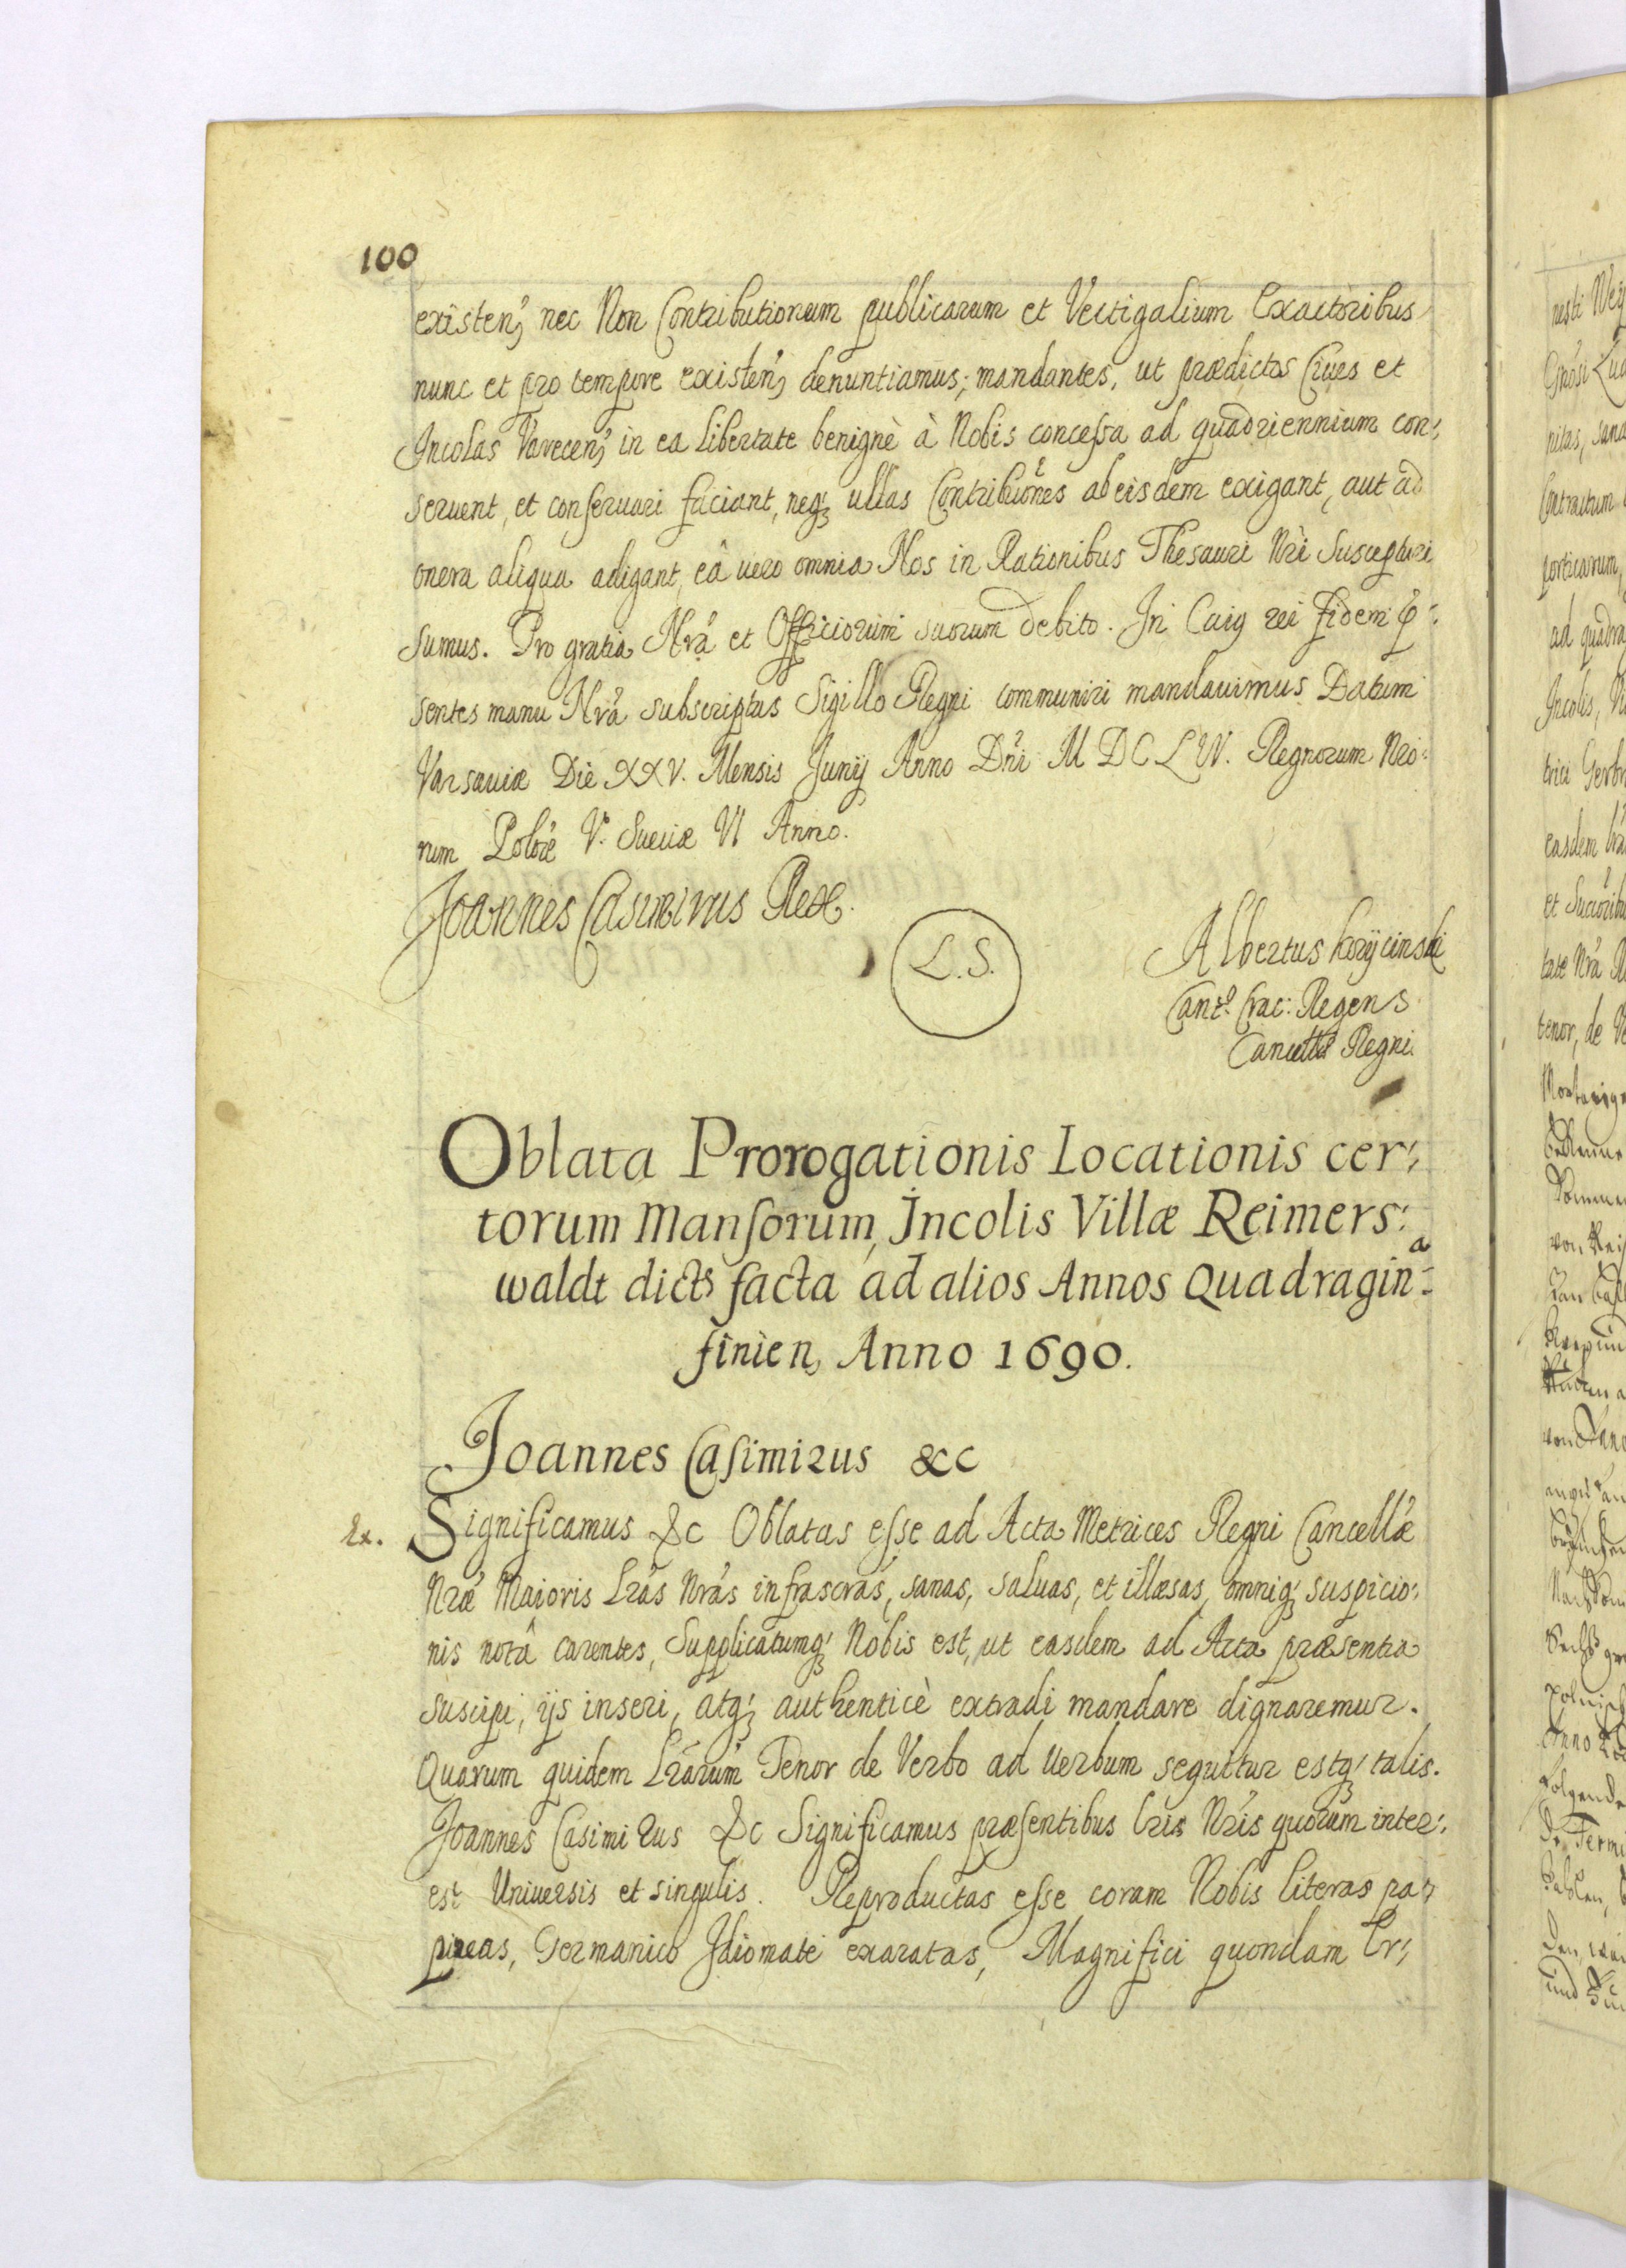 100
existen, nec Non Contributionum publicarum et Vectigalium Exactoribus
nunc et pro tempore existen, denuntiamus; mandantes, ut prædictos Ciues et
Incolas Varecen, in ea libertate benignè à Nobis concessa ad quadriennium con:
seruent, et conseruari faciant, neq; ullas Contribuones ab eisdem exigant, aut ad
onera aliqua adigant, eâ uero omnia Nos in Rationibus Thesauri Nri Suscepturi
sumus. Pro gratia Nrâ et Officiorum suorum debito. In Cuig rei fidem p:
sentes manu Nrâ subscriptas Sigillo Regni communiri mandauimus Datum
Varsauiæ Die XXV. Mensis Junij Anno Dni M DC LIV. Regnorum Nro:
rum Polôæ V. Sueuiæ VI Anno.
Joannes Casimirus Rex.
L. S.
Albertus korÿcinski
Canz. Crac: Regens
Cancellæ Regni.
Oblata Prorogationis Locationis cer:
torum Mansorum, Incolis Villæ Reimers:
waldt dicts facta ad alios Annos Quadragin:a
finien, Anno 1690.
Joannes Casimirus &c
Ex. Significamus &c Oblatas esse ad Acta Metrices Regni Cancellæ
Nræ Maioris Lrâs Nrâs infrascrâs, sanas, saluas, et illæsas, omniq; suspicio:
nis notâ carentes, Supplicatumq; Nobis est, ut easdem ad Acta præsentia
suscipi, ijs inseri, atq; authenticè extradi mandare dignaremur.
Quarum quidem Lrarum Tenor de Verbo ad Verbum sequitur estq; talis.
Joannes Casimirus &c Significamus præsentibus lris Nris quorum inter:
est Uniuersis et singulis. Reproductas esse coram Nobis literas pa:
pireas, Germanico Idiomate exaratas, Magnifici quondam Er: